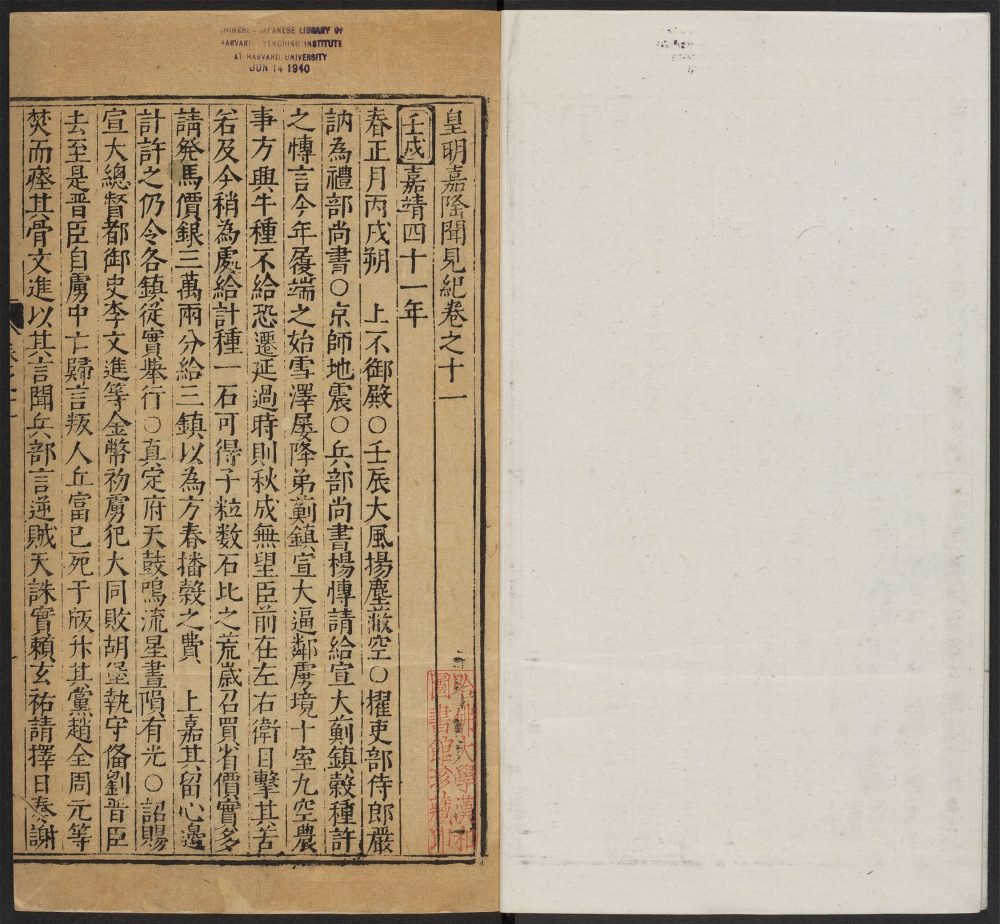 CHINESE - JAPANESE LIBRARY OF
HARVARD YENCHING INSTITUTE
AT HARVARD UNIVERSITY
JUN 14 1940
皇明嘉隆聞見紀卷之十一
壬戌嘉靖四十一年
春正月丙戌朔　上不御殿○壬辰大風揚塵蔽空○擢吏部侍郎嚴
訥為禮部尚書○京師地震○兵部尚書楊博請給宣大薊鎮穀種許
之慱言今年履端之始雪澤屢降弟薊鎮宣大逼鄰虜境十室九空農
事方興牛種不給恐遷延過時則秋成無望臣前在左右衛目擊其苦
若及今稍為處給計種一石可得子粒数石比之荒歲召買省價實多
請發馬價銀三萬兩分給三鎮以為方春播穀之費　上嘉其留心邊
計許之仍令各鎮從實舉行○真定府天鼓鳴流星晝隕有光○詔賜
宣大總督都御史李文進等金幣初虜犯大同敗胡堡執守俻劉晋臣
去至是晋臣自虜中亡歸言叛人丘富已死于版升其黨趙全周元等
焚而瘞其骨文進以其言聞兵部言逆賊天誅實賴玄祐請擇日奏謝
哈佛大學漢和
圖書館珍藏印